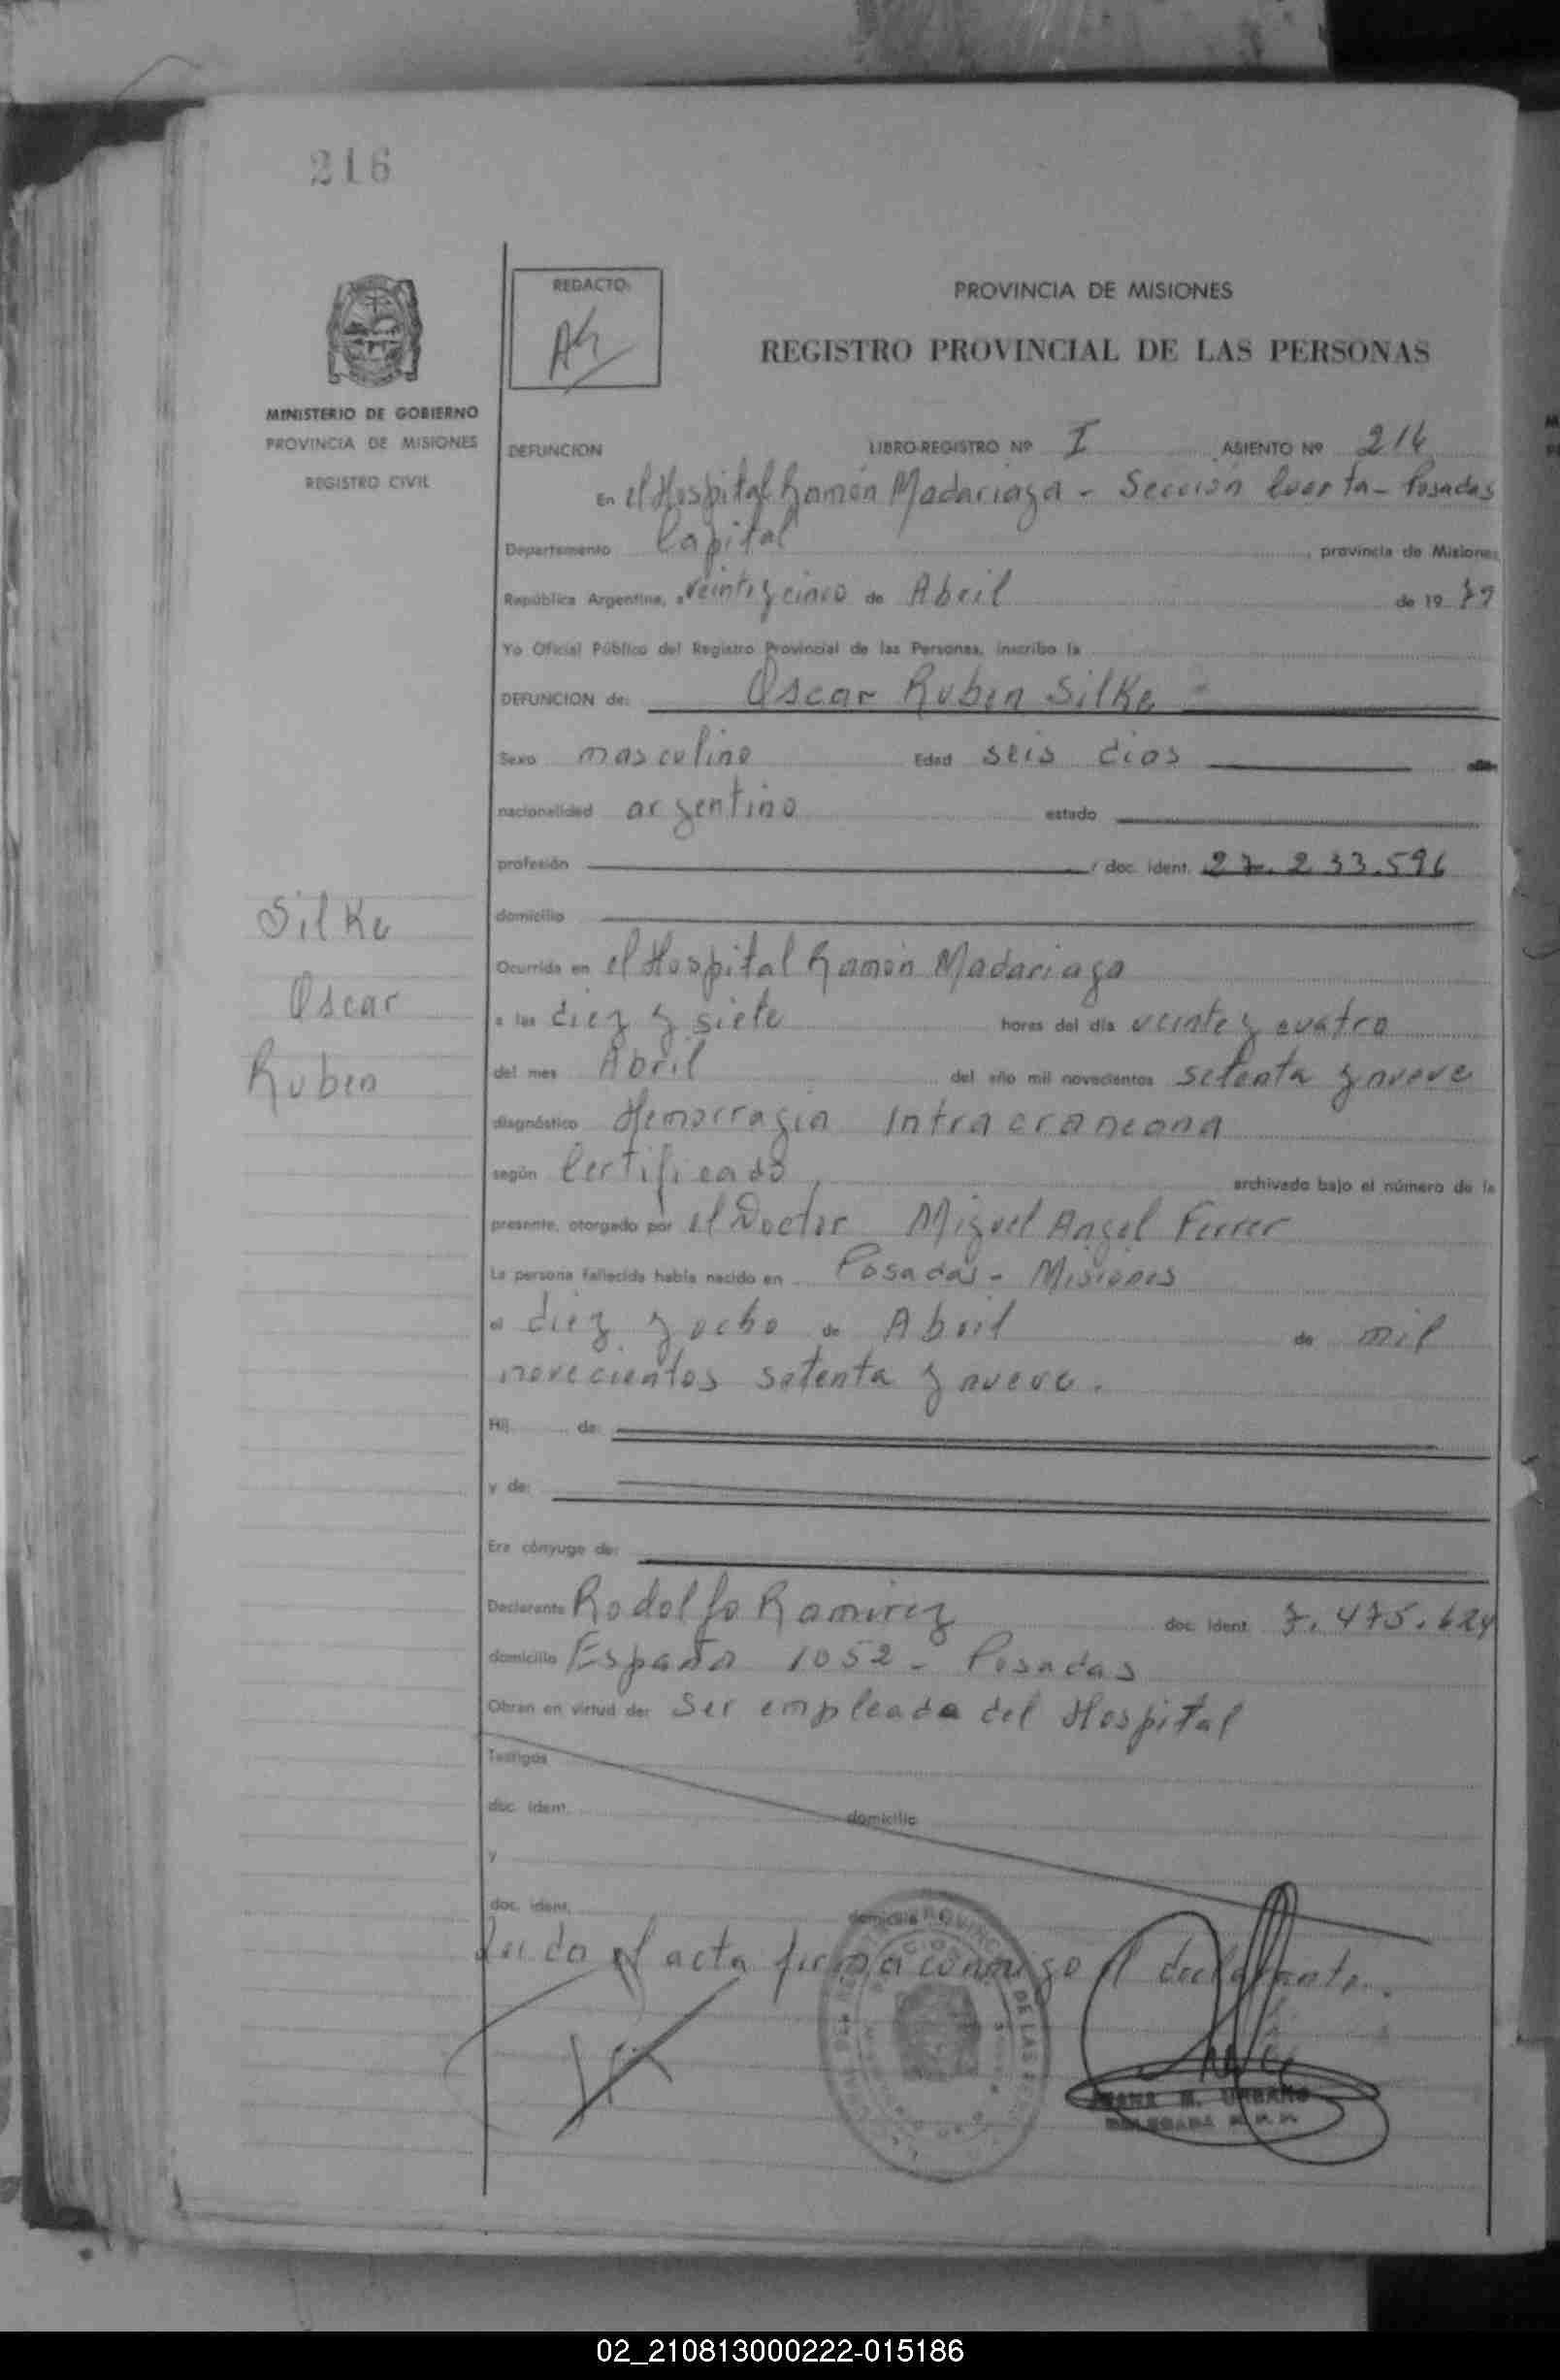 216
REDACTO:
PROVINCIA DE MISIONES
REGISTRO PROVINCIAL DE LAS PERSONAS
MINISTERIO DE GOBIERNO
PROVINCIA DE MISIONES
REGISTRO CIVIL
DEFUNCION LIBRO-REGISTRO Nº I ASIENTO Nº 216
En el Hospital Ramón Madariaga - Sección Cuarta - Posadas
Departamento Capital, provincia de Misiones
República Argentina, a veinti y cinco de Abril de 19 79
Yo Oficial Público del Registro Provincial de las Personas, inscribo la
DEFUNCION de: Oscar Ruben Silke
Sexo masculino Edad seis dias
nacionalidad argentino estado
profesión doc. ident. 27.233.596
domicilio
Silke
Oscar
Ruben
Ocurrida en el Hospital Ramón Madariaga
a las diez y siete horas del día veinte y cuatro
del mes Abril del año mil novecientos setenta y nueve
diagnóstico Hemorragia Intracraneana
según Certificado, archivado bajo el número de la
presente, otorgado por el Doctor Miguel Angel Ferrer
La persona fallecida había nacido en Posadas - Misiones
el diez y ocho de Abril de mil
novecientos setenta y nueve.
Hij de:
y de:
Era cónyuge de:
Declarante Rodolfo Ramirez doc. ident. 7.475.624
domicilio España 1052 - Posadas
Obran en virtud de: Ser empleado del Hospital
Testigos
doc. ident. domicilio
y
doc. ident. domicilio
Leida el acta firma conmigo el declarante.
URBANO
02_210813000222-015186